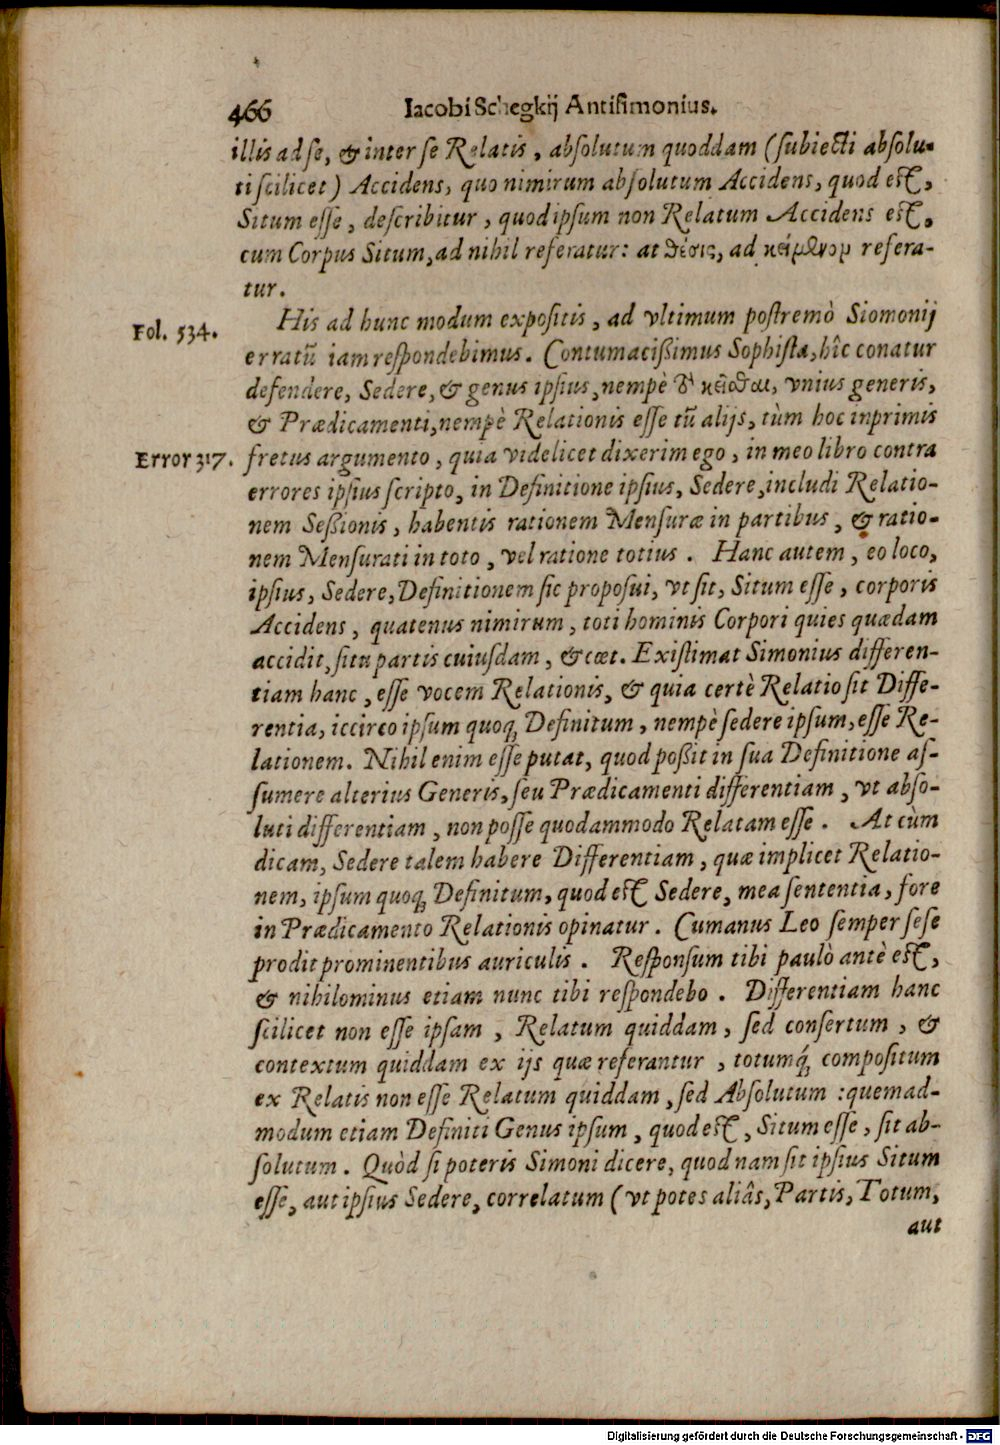 466 Iacobi Schegkij Antisimonius.
illis ad se, & inter se Relatis, absolutum quoddam (subiecti absolu-
ti scilicet) Accidens, quo nimirum absolutum Accidens, quod est,
Situm esse, describitur, quod ipsum non Relatum Accidens est,
cum Corpus Situm, ad nihil referatur: at θέσις, ad κείμενον refera-
tur.
His ad hunc modum expositis, ad vltimum postremò Siomonij
Fol. 534.
erratũ iam respondebimus. Contumacißimus Sophista, hîc conatur
defendere, Sedere, & genus ipsius, nempè τὸ κεῖσθαι, vnius generis,
& Prædicamenti, nempè Relationis esse tũ alijs, tùm hoc inprimis
Error 317.
fretus argumento, quia videlicet dixerim ego, in meo libro contra
errores ipsius scripto, in Definitione ipsius, Sedere, includi Relatio-
nem Seßionis, habentis rationem Mensuræ in partibus, & ratio-
nem Mensurati in toto, vel ratione totius. Hanc autem, eo loco,
ipsius, Sedere, Definitionem sic proposui, vt sit, Situm esse, corporis
Accidens, quatenus nimirum, toti hominis Corpori quies quædam
accidit, situ partis cuiusdam, & cœt. Existimat Simonius differen-
tiam hanc, esse vocem Relationis, & quia certè Relatio sit Diffe-
rentia, iccirco ipsum quoq; Definitum, nempè sedere ipsum, esse Re-
lationem. Nihil enim esse putat, quod poßit in sua Definitione as-
sumere alterius Generis, seu Prædicamenti differentiam, vt abso-
luti differentiam, non posse quodammodo Relatam esse. At cùm
dicam, Sedere talem habere Differentiam, quæ implicet Relatio-
nem, ipsum quoq; Definitum, quod est Sedere, mea sententia, fore
in Prædicamento Relationis opinatur. Cumanus Leo semper sese
prodit prominentibus auriculis. Responsum tibi paulò antè est,
& nihilominus etiam nunc tibi respondebo. Differentiam hanc
scilicet non esse ipsam, Relatum quiddam, sed consertum, &
contextum quiddam ex ijs quæ referantur, totumq́; compositum
ex Relatis non esse Relatum quiddam, sed Absolutum: quemad-
modum etiam Definiti Genus ipsum, quod est, Situm esse, sit ab-
solutum. Quòd si poteris Simoni dicere, quodnam sit ipsius Situm
esse, aut ipsius Sedere, correlatum (vt potes aliâs, Partis, Totum,
aut
Digitalisierung gefördert durch die Deutsche Forschungsgemeinschaft - DFG